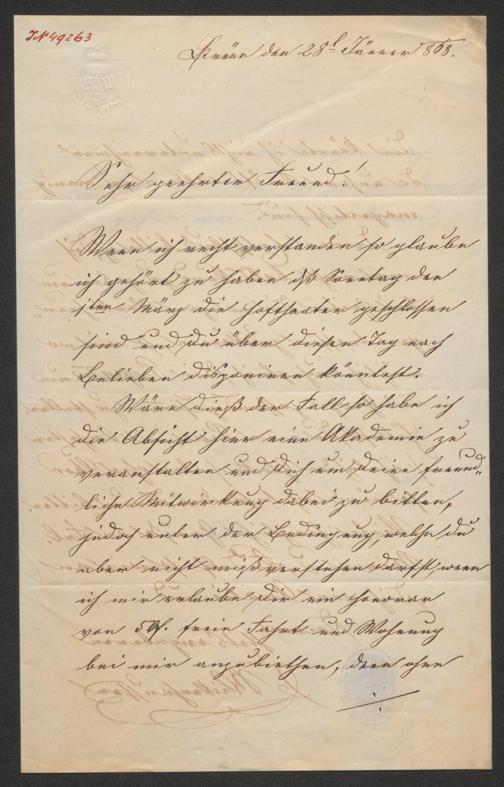 IN 49263
Brünn den 28t Jänner 1868.
Sehr geehrter Freund!
Wenn ich recht verstanden so glaube
ich gehört zu haben dß Sonntag den
1ten März die Hoftheater geschlossen
sind und du über diesen Tag nach
Belieben disponiren könntest.
Wäre dieß der Fall so habe ich
die Absicht hier eine Akademie zu
veranstalten und dich um deine freund-
liche Mitwirkung dabei zu bitten,
jedoch unter der Bedingung, welche du
aber nicht mißverstehen darfst, wenn
ich mir erlaube dir ein Honorar
von 50f. freie Fahrt und Wohnung
bei mir anzubiethen, denn ohne